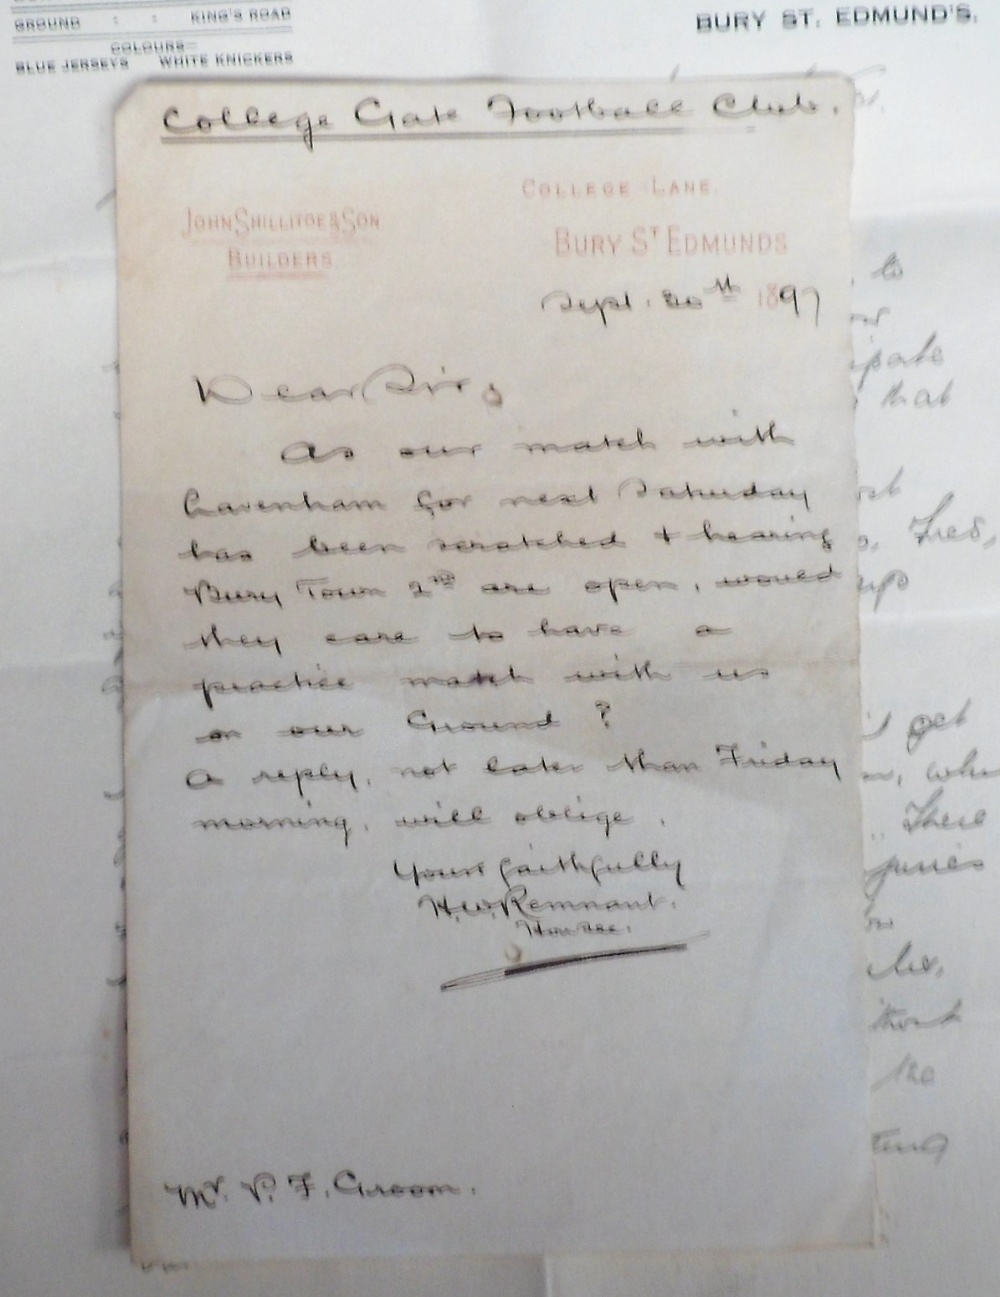 GROUND : : KING'S ROAD
COLOURS—
BLUE JERSEYS WHITE KNICKERS
BURY ST. EDMUND'S.
College Gate Football Club.
COLLEGE LANE.
JOHN SHILLITOE & SON
BUILDERS.
BURY ST EDMUNDS
Sept. 20th 1897
Dear Sir,
As our match with
Lavenham for next Saturday
has been scratched & hearing
Bury Town 2nd are open, would
they care to have a
practice match with us
on our Ground ?
A reply, not later than Friday
morning, will oblige.
Yours faithfully
H.W. Remnant.
Hon Sec.
Mr. P. F. Groom.
to
that
Fred,
get
There
the